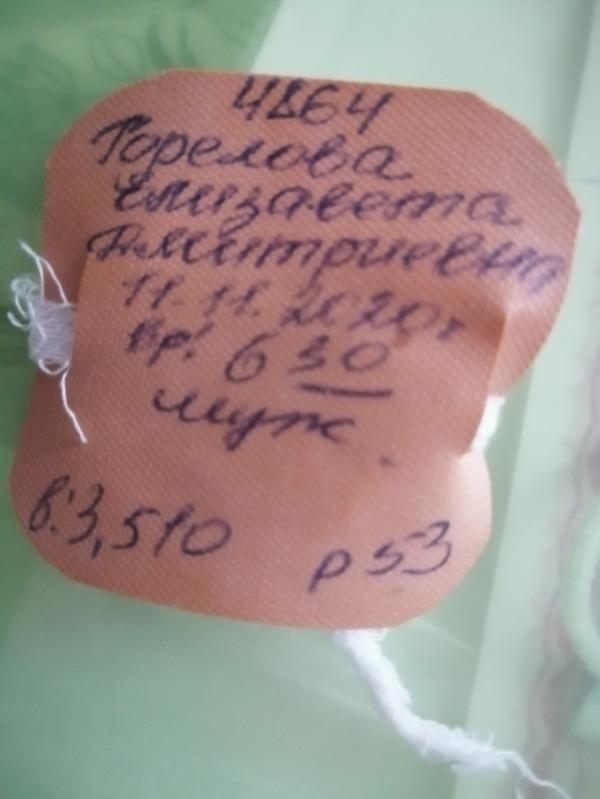 4864
Горелова
Елизавета
Дмитриевна
11.11.2020г
вр: 6 30
муж.
в:3,510
р 53